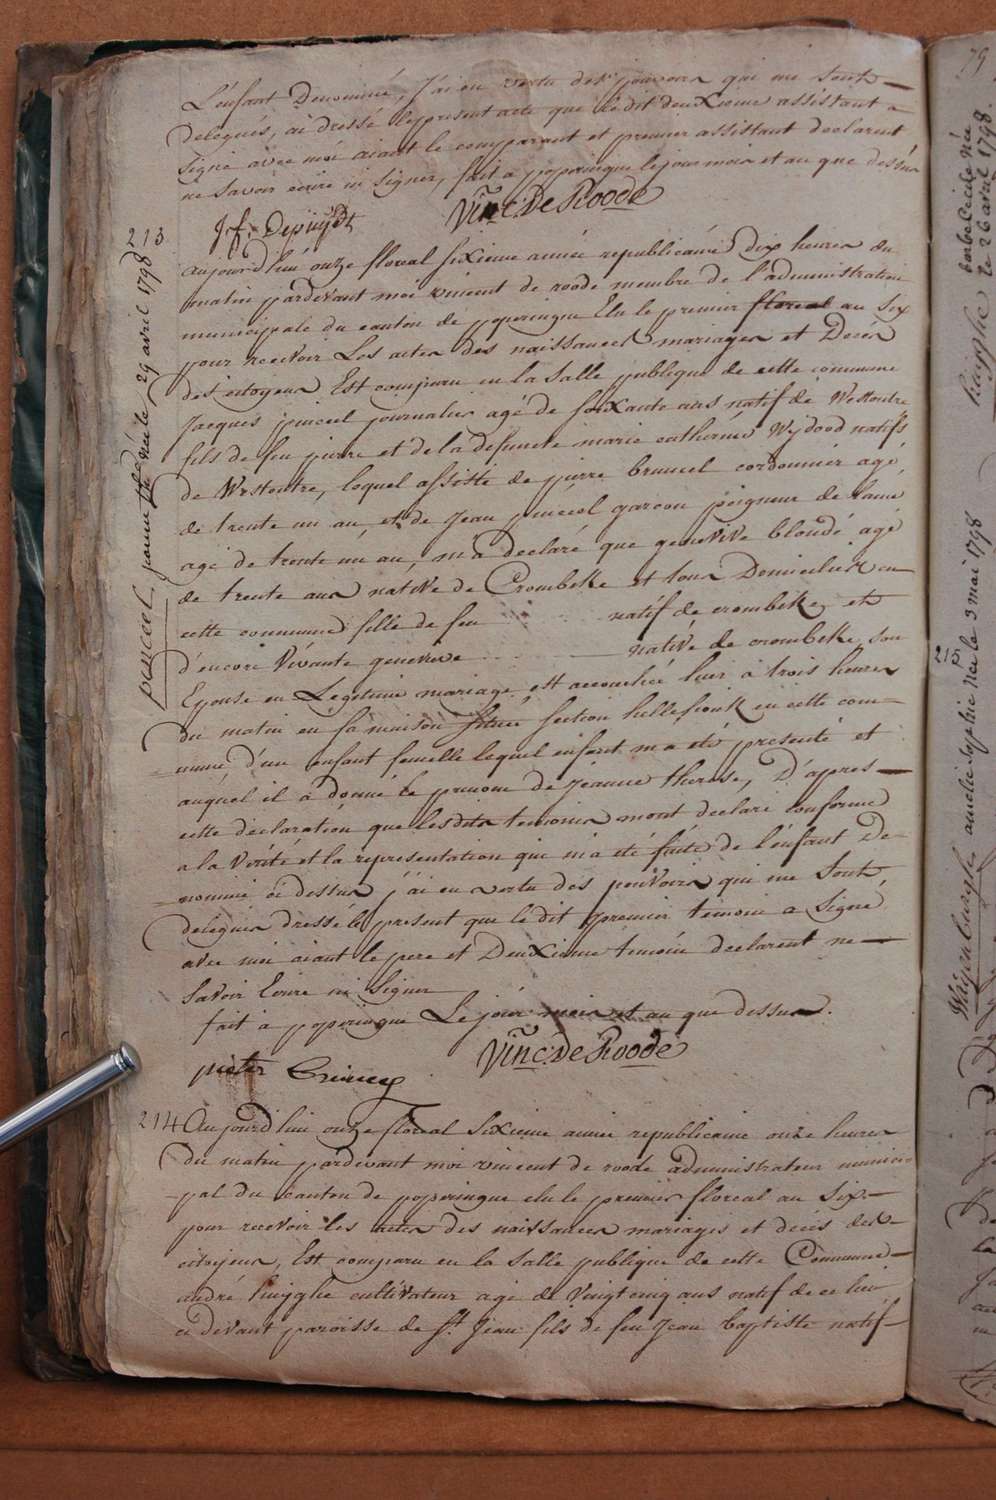 L'enfant Denommé, J'ai en vertu des pouvoirs qui me sont
delegués, ai dressé le present acte que le dit deuxieme assistant a
signé avec moi aiant le comparant et premier assistant declarent
ne savoir ecrire ni signer, fait a poperingue le jour mois et an que dessus
J. f. Depuijdt Vinc. De Roode
213
pinceel, jeanne thse née le 29 avril 1798
aujourd'hui onze floreal sixieme année republicaine dix heures du
matin pardevant moi vincent de roode membre de l'administration
municipale du canton de poperingue Elu le premier floreal au six
pour recevoir Les actes des naissances mariages et Decès
des citoyens Est comparu en la salle publique de cette commune
Jacques pinceel journalier agé de soixante ans natif de Westoutre
fils de feu pierre et de la defuncte marie catharine Wijdood natifs
de Westoutre, lequel assisté de pierre bruneel cordonnier agé
de trente un an, et de Jean pinceel garcon peigneur de laine
agé de trente un an, m'a declaré que genevive blondé agé
de trente ans native de Crombeke et tous Domiciliés en
cette commune fille de feu natif de crombeke et
d'encore vivante genevieve native de crombeke, son
Epouse en Legetime mariage est accouchée hier à trois heures
du matin en sa maison située section hellehoek en cette com-
mune d'un enfant femelle lequel enfant m'a été presenté et
auquel il a donné le prenom de Jeanne therese, D'apres
cette declaration que lesdits temoins m'ont declaré conforme
a la Verité et la representation qui m'a été faite de l'enfant De-
nommé ci dessus j'ai en vertu des pouvoirs qui me sont
delegués dressé le present que le dit premier temoin a signé
avec moi aiant le pere et Deuxieme temoin declarent ne
savoir Ecrire ni signer
fait à poperingue Le jour mois et an que dessus.
pieter Vinc. De Roode
214 Aujourd'hui onze floreal sixieme année republicaine onze heures
du matin pardevant moi vincent de roode administrateur munici-
pal du canton de poperingue elu le premier floreal au six
pour recevoir les actes des naissances mariages et decés des
citoyens, Est comparu en la salle publique de cette Commune
andré huijghe cultivateur agé de vingt cinq ans natif de ce lieu
ci devant paroisse de St Jean fils de feu Jean baptiste natif
79
huijghe barbe Cecile née
le 26 avril 1798.
Weijenburgh amelie sophie née le 3 mai 1798